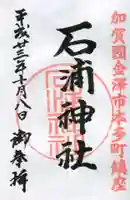 加賀國金澤市本多町鎮座
石浦神社
平成廿三年十月八日
御奉拝